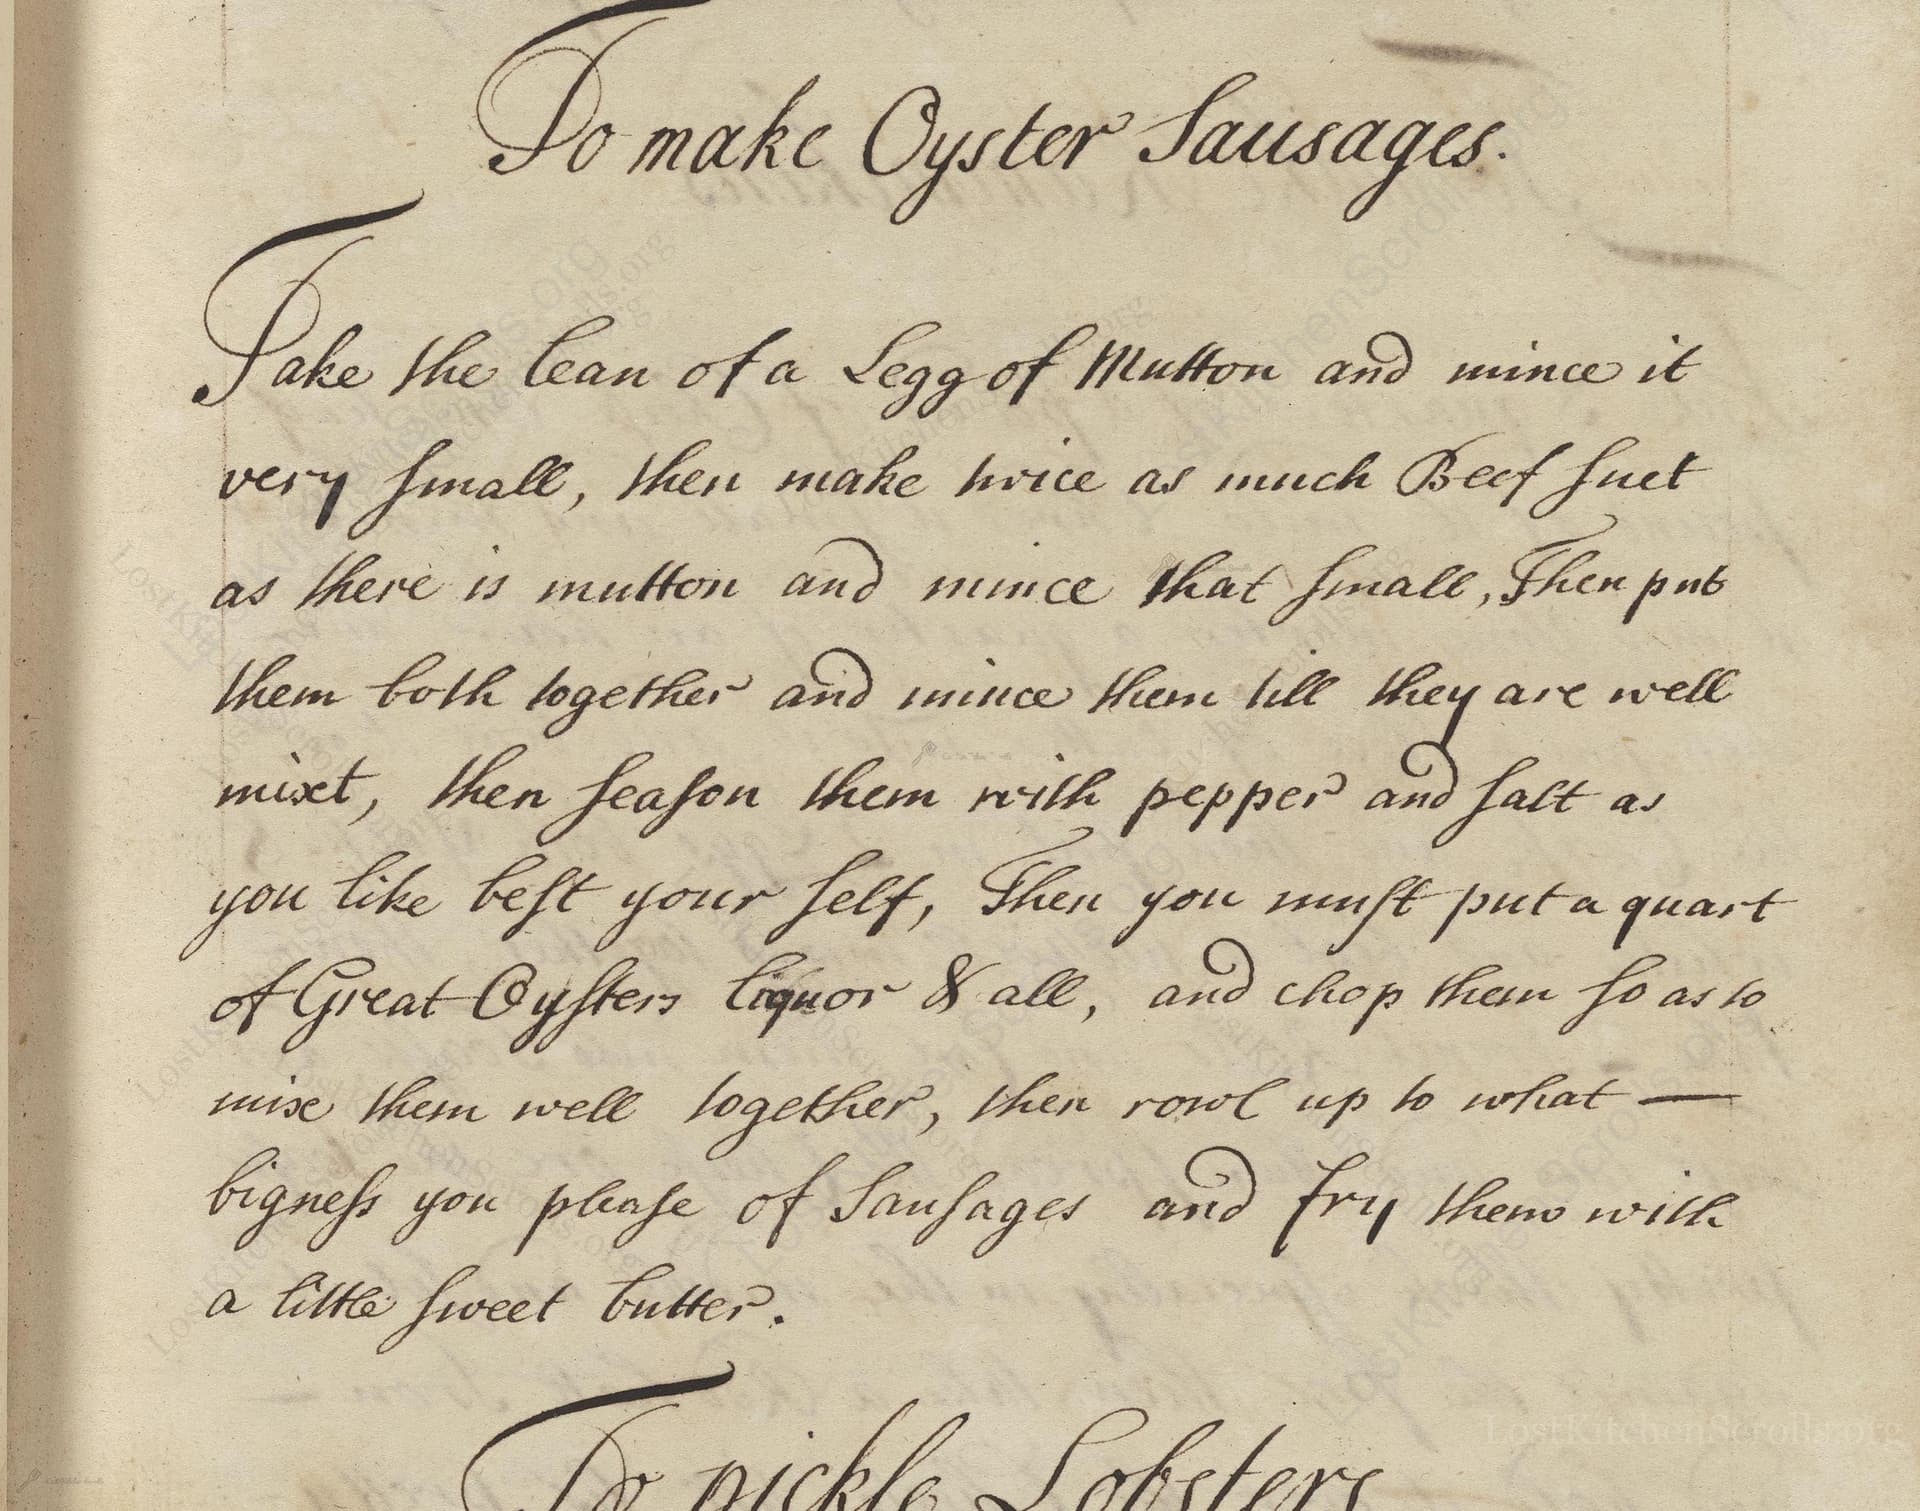 To make Oyster Sausages.
Take the lean of a Legg of Mutton and mince it
very small, then make twice as much Beef suet
as there is mutton and mince that small, Then put
them both together and mince them till they are well
mixt, then season them with pepper and salt as
you like best your self, Then you must put a quart
of Great Oysters liquor & all, and chop them so as to
mixe them well together, then rowl up to what —
bigness you please of Sausages and fry them with
a little sweet butter.
To pickle Lobsters
LostKitchenScrolls.org